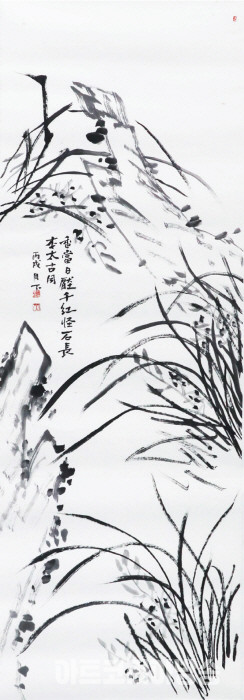 香當日千紅怪石長
太古同
丙戌月下
아트코리아방송